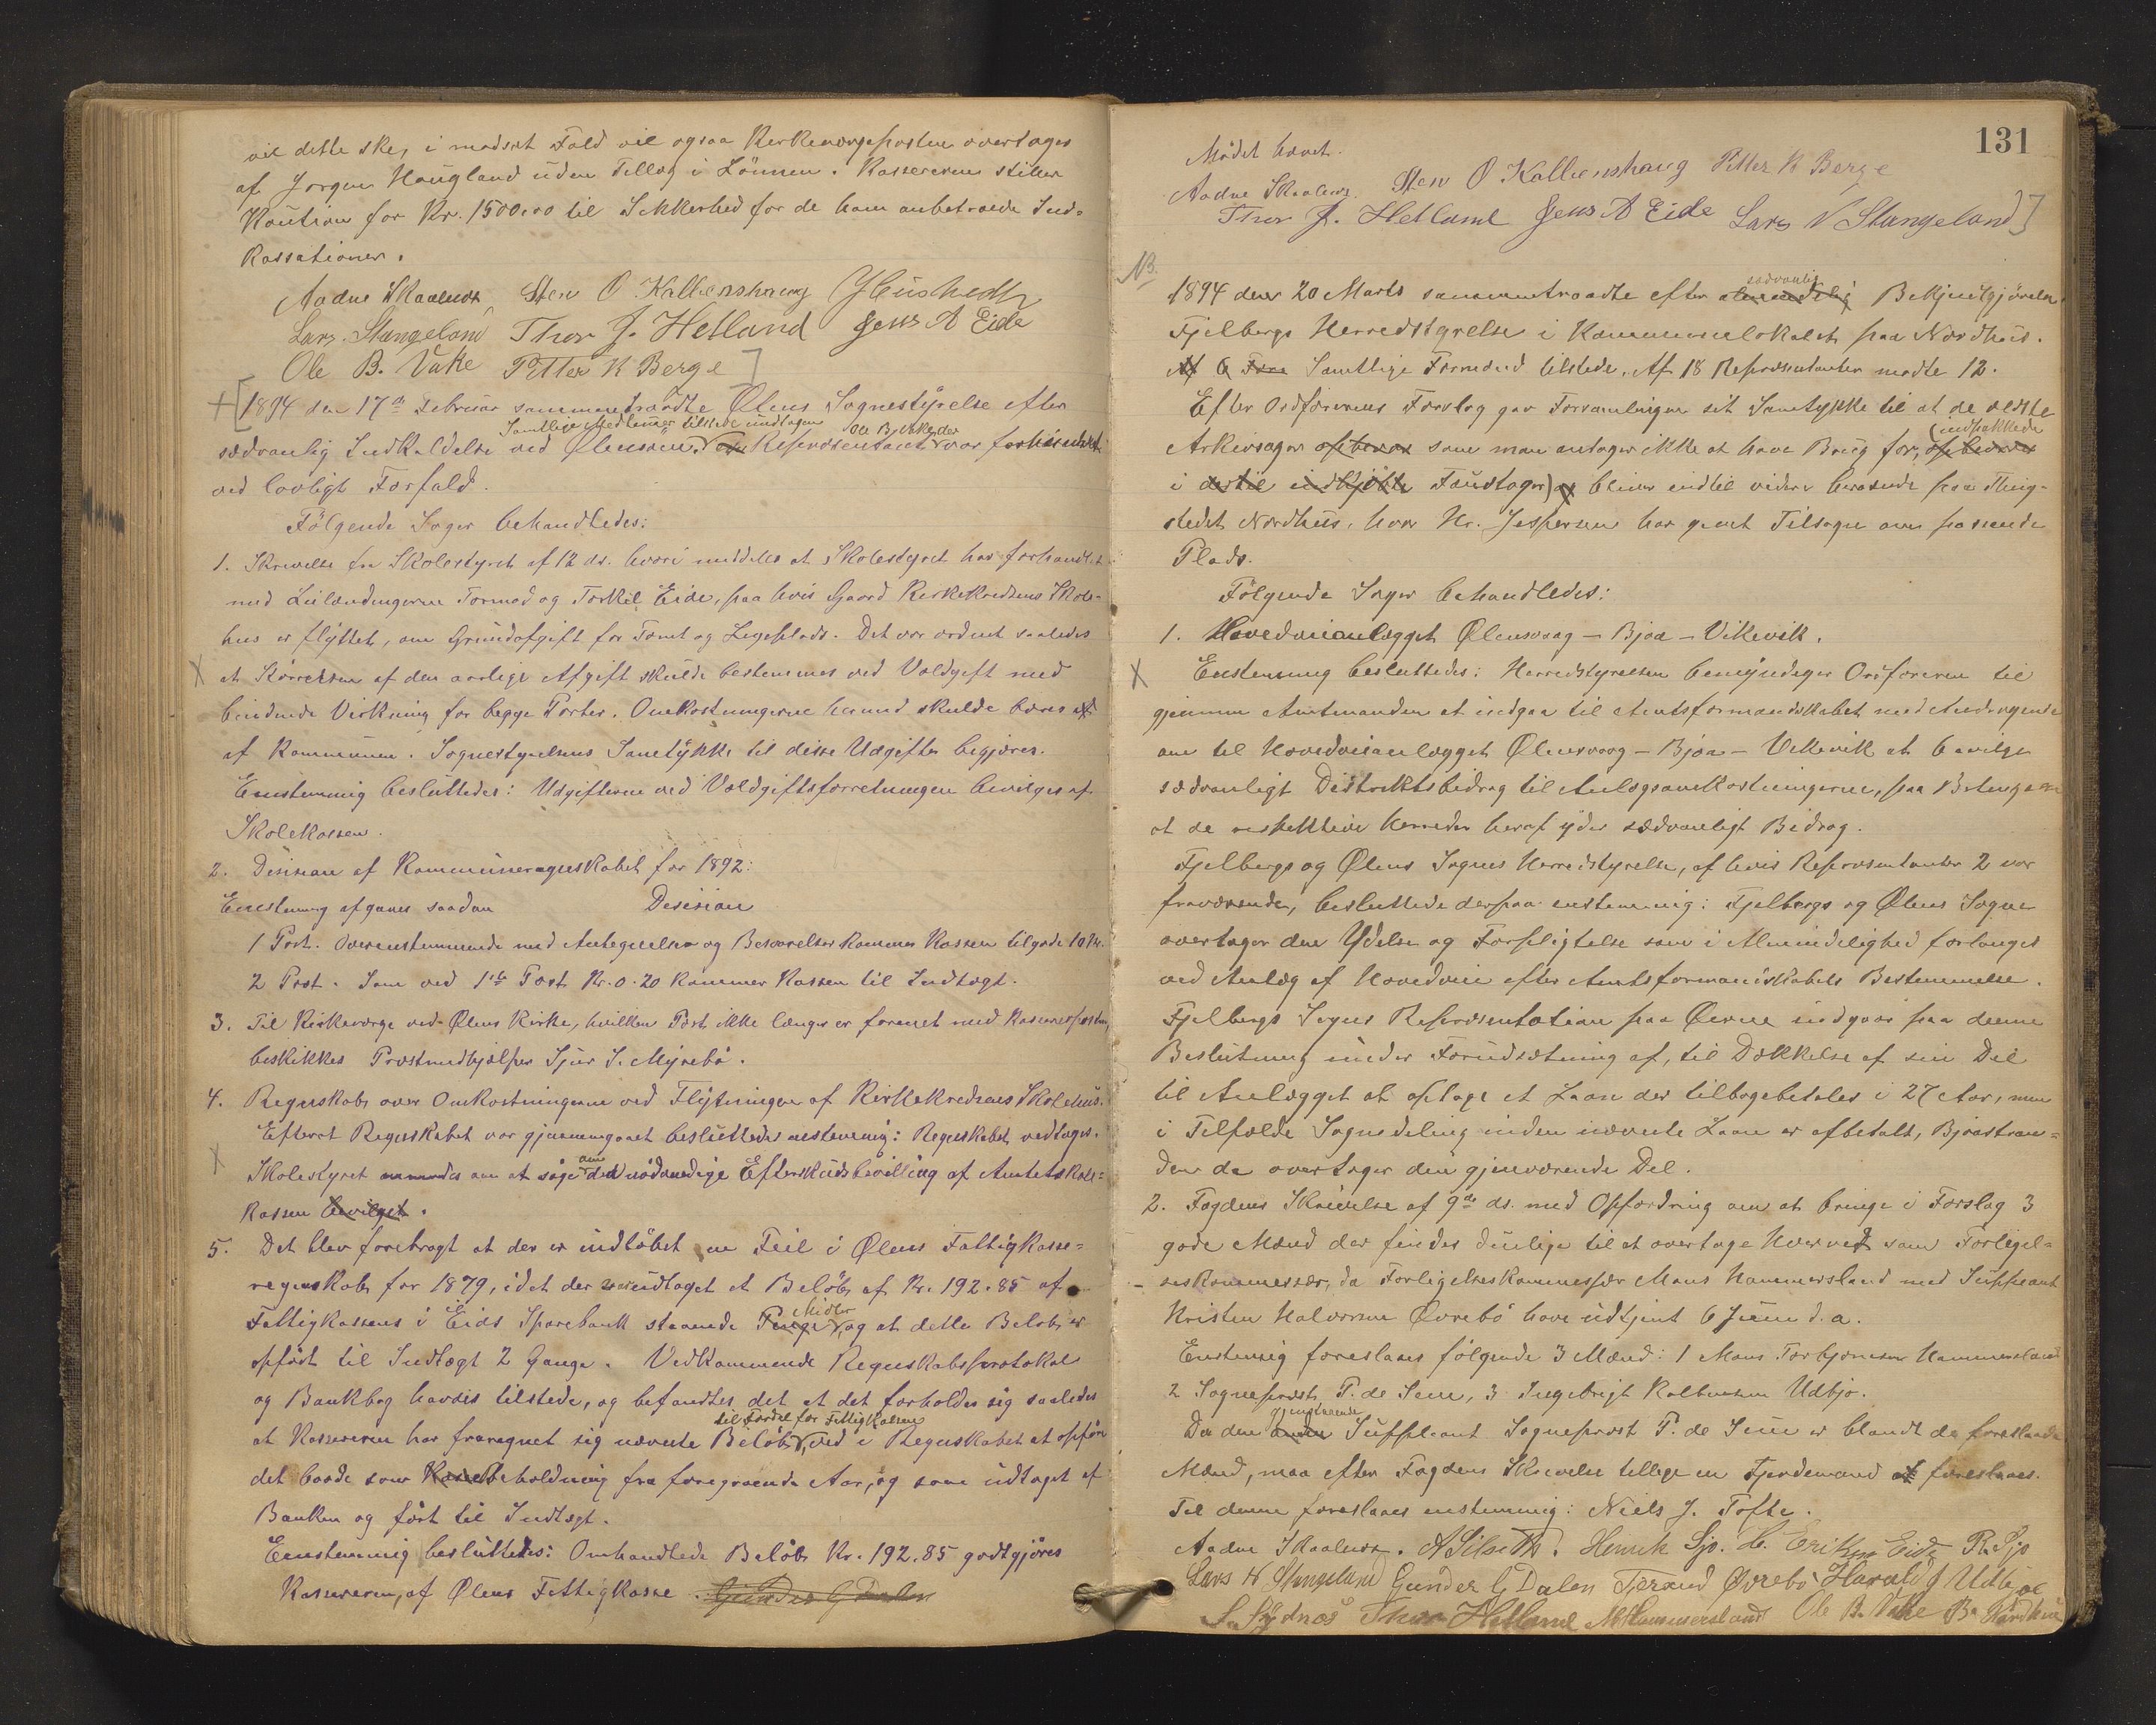 vil dette ske, i modsat Fald vil ogsaa Kirkeværgeposten overtages
af Jørgen Haugland uden Tillæg i Lønnen. Kassereren stiller
Kaution for Kr. 1500.00 til Sikkerhed for de ham anbetroede Ind-
kassationer.
Aadne Skaaluren Sten O Kallevshaug
Lars Stangeland Thor J. Hetland Jens A Eide
Ole B. Vake Petter K Berge ]
[1894 den 17de Februar sammentraadte Ølens Sognestyrelse efter
Samtlige Medlemmer tilstede undtagen Ole B. Vake der
sædvanlig Indkaldelse ved Ølensøren. Repræsentant var forhindret
ved lovligt Forfald.
Følgende Sager behandledes:
1. Skrivelse fra Skolestyret af 12 ds. hvori meddeles at Skolestyret har forhandlet
med Leilændingerne Tormod og Torkil Eide, paa hvis Gaard Kirkekredsens Skole-
hus er flyttet, om Grundafgift for Tomt og Legeplads. Det var ordnet saaledes
at Størrelsen af den aarlige Afgift skulde bestemmes ved Voldgift med
bindende Virkning for begge Parter. Omkostningerne herved skulde bæres
af Kommunen. Sognestyrelsens Samtykke til disse Udgifter begjæres.
Enstemmig besluttedes: Udgifterne ved Voldgiftsforretningen bevilges af
Skolekassen.
2. Desision af Kommuneregnskabet for 1892:
Enstemmig afgaves saadan Desision
1 Post. Overensstemmende med Antegnelser og Besvarelser kommer Kassen tilgode 10 Kr.
2 Post. Som ved 1ste Post Kr. 0.20 kommer Kassen til Indtægt.
3. Til Kirkeværge ved Ølens Kirke, hvilken Post ikke længer er forenet med Kassererposten,
beskikkes Præstmedhjælper Sjur S. Myrebø.
4. Regnskab over Omkostningerne ved Flytningen af Kirkekredsens Skolehus.
Efterat Regnskabet var gjennemgaaet besluttedes enstemmig: Regnskabet vedtages.
Skolestyret anmodes om at søge om den nødvendige Efterskudsbevilling af Amtetskole-
kassen bevilget.
5. Det blev forebragt at der er indløbet en Feil i Ølens Fattigkasse-
regnskab for 1879, idet der var udtaget et Beløb af Kr. 192.85 af
Midler
Fattigkassens i Eids Sparebank staaende Penge, og at dette Beløb er
opført til Indtægt 2 Gange. Vedkommende Regnskabsprotokol
og Bankbog havdes tilstede, og befandtes det at det forholder sig saaledes
til Fordel for Fattigkassen
at Kassereren har fraregnet sig nævnte Beløb, ved i Regnskabet at opføre
det baade som Kassebeholdning fra foregaaende Aar, og som udtaget af
Banken og ført til Indtægt.
Enstemmig besluttedes: Omhandlede Beløb Kr. 192.85 godtgjøres
Kassereren, af Ølens Fattigkasse. Gunder G Dalen
131
Mødet hævet.
Aadne Skaaluren Sten O Kallevshaug Petter K Berge
Thor J. Hetland Jens A Eide Lars N Stangeland]
NB.
sædvanlig
1894 den 20 Marts sammentraadte efter almindelig Bekjendtgjørelse
Fjelbergs Herredstyrelse i Kommunelokalet paa Nordhus.
Af 6 Form Samtlige Formænd tilstede. Af 18 Repræsentanter mødte 12.
Efter Ordførerens Forslag gav Forsamlingen sit Samtykke til at de ældste
(indpakkede
Arkivsager opbevar som man antager ikke at have Brug for, opbevares
i dertil indkjøbte Foustager) bliver indtil videre beroende paa Thing-
stedet Nordhus, hvor Hr. Jespersen har givet Tilsagn om passende
Plads.
Følgende Sager behandledes:
1. Hovedveianlægget Ølensvaag – Bjoa – Vikevik.
Enstemmig besluttedes: Herredstyrelsen bemyndiger Ordføreren til
gjennem Amtmanden at indgaa til Amtsformandskabet med Andragende
om til Hovedveianlægget Ølensvaag – Bjoa – Vikevik at bevilge
sædvanligt Distriktsbidrag til Anlægsomkostningerne, paa Betingelse
at de respektive Herreder heraf yder sædvanligt Bidrag.
Fjelbergs og Ølens Sognes Herredstyrelse, af hvis Repræsentanter 2 var
fraværende, besluttede derpaa enstemmig: Fjelbergs og Ølens Sogne
overtager den Ydelse og Forpligtelse som i Almindelighed forlanges
ved Anlæg af Hovedvei efter Amtsformandskabets Bestemmelse.
Fjelbergs Sogns Repræsentation paa Øerne indgaar paa denne
Beslutning under Forudsætning af, til Dækkelse af sin Del
til Anlægget at optage et Laan der tilbagebetales i 27 Aar, men
i Tilfælde Sognedeling inden nævnte Laan er afbetalt, Bjoastran-
den da overtager den gjenværende Del.
2. Fogdens Skrivelse af 9de ds. med Opfordring om at bringe i Forslag 3
gode Mænd der findes duelige til at overtage Hvervet som Forligel-
seskommissær, da Forligelseskommissær Mons Hammersland med Suppleant
Kristen Halvorsen Øvrebø have udtjent 6 Juni d. a.
Enstemmig foreslaaes følgende 3 Mænd: 1 Mons Torbjørnsen Hammersland
2 Sogneprest P. de Seue, 3 Ingebrigt Kolbensen Udbjo.
gjenstaaende
Da den anden Suppleant Sogneprest P. de Seue er blandt de foreslaaede
Mænd, maa efter Fogdens Skrivelse tillige en Fjerdemand foreslaaes.
Til denne foreslaaes enstemmig: Niels J. Tofte.
Aadne Skaaluren. A Silseth. Henrik Sjo. H. Eriksen Eide R. Sjo
Lars N Stangeland Gunder G Dalen Tjerand Øvrebø Harald J Udbjoe
S. Sydnæs Thor Hetland M Hammersland Ole B. Vake B. Nordhus